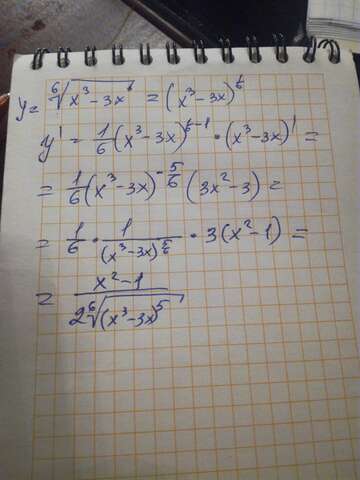 y = ⁶√(x³ − 3x) = (x³ − 3x)^(1/6)
y' = 1/6 (x³ − 3x)^(1/6 − 1) · (x³ − 3x)' =
= 1/6 (x³ − 3x)^(−5/6) (3x² − 3) =
= 1/6 · 1/(x³ − 3x)^(5/6) · 3(x² − 1) =
= (x² − 1)/(2 ⁶√((x³ − 3x)⁵))